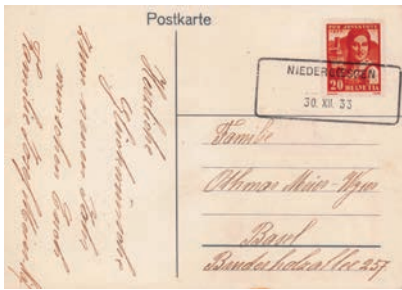 Postkarte
PRO JUVENTUTE
20 HELVETIA
30. XII. 33
Herzliche
Glückwünsche
zum neuen Jahr
wünschen Ernst
Familie
Familie
Othmar Meier-Wyser
Basel
Bruderholzallee 257